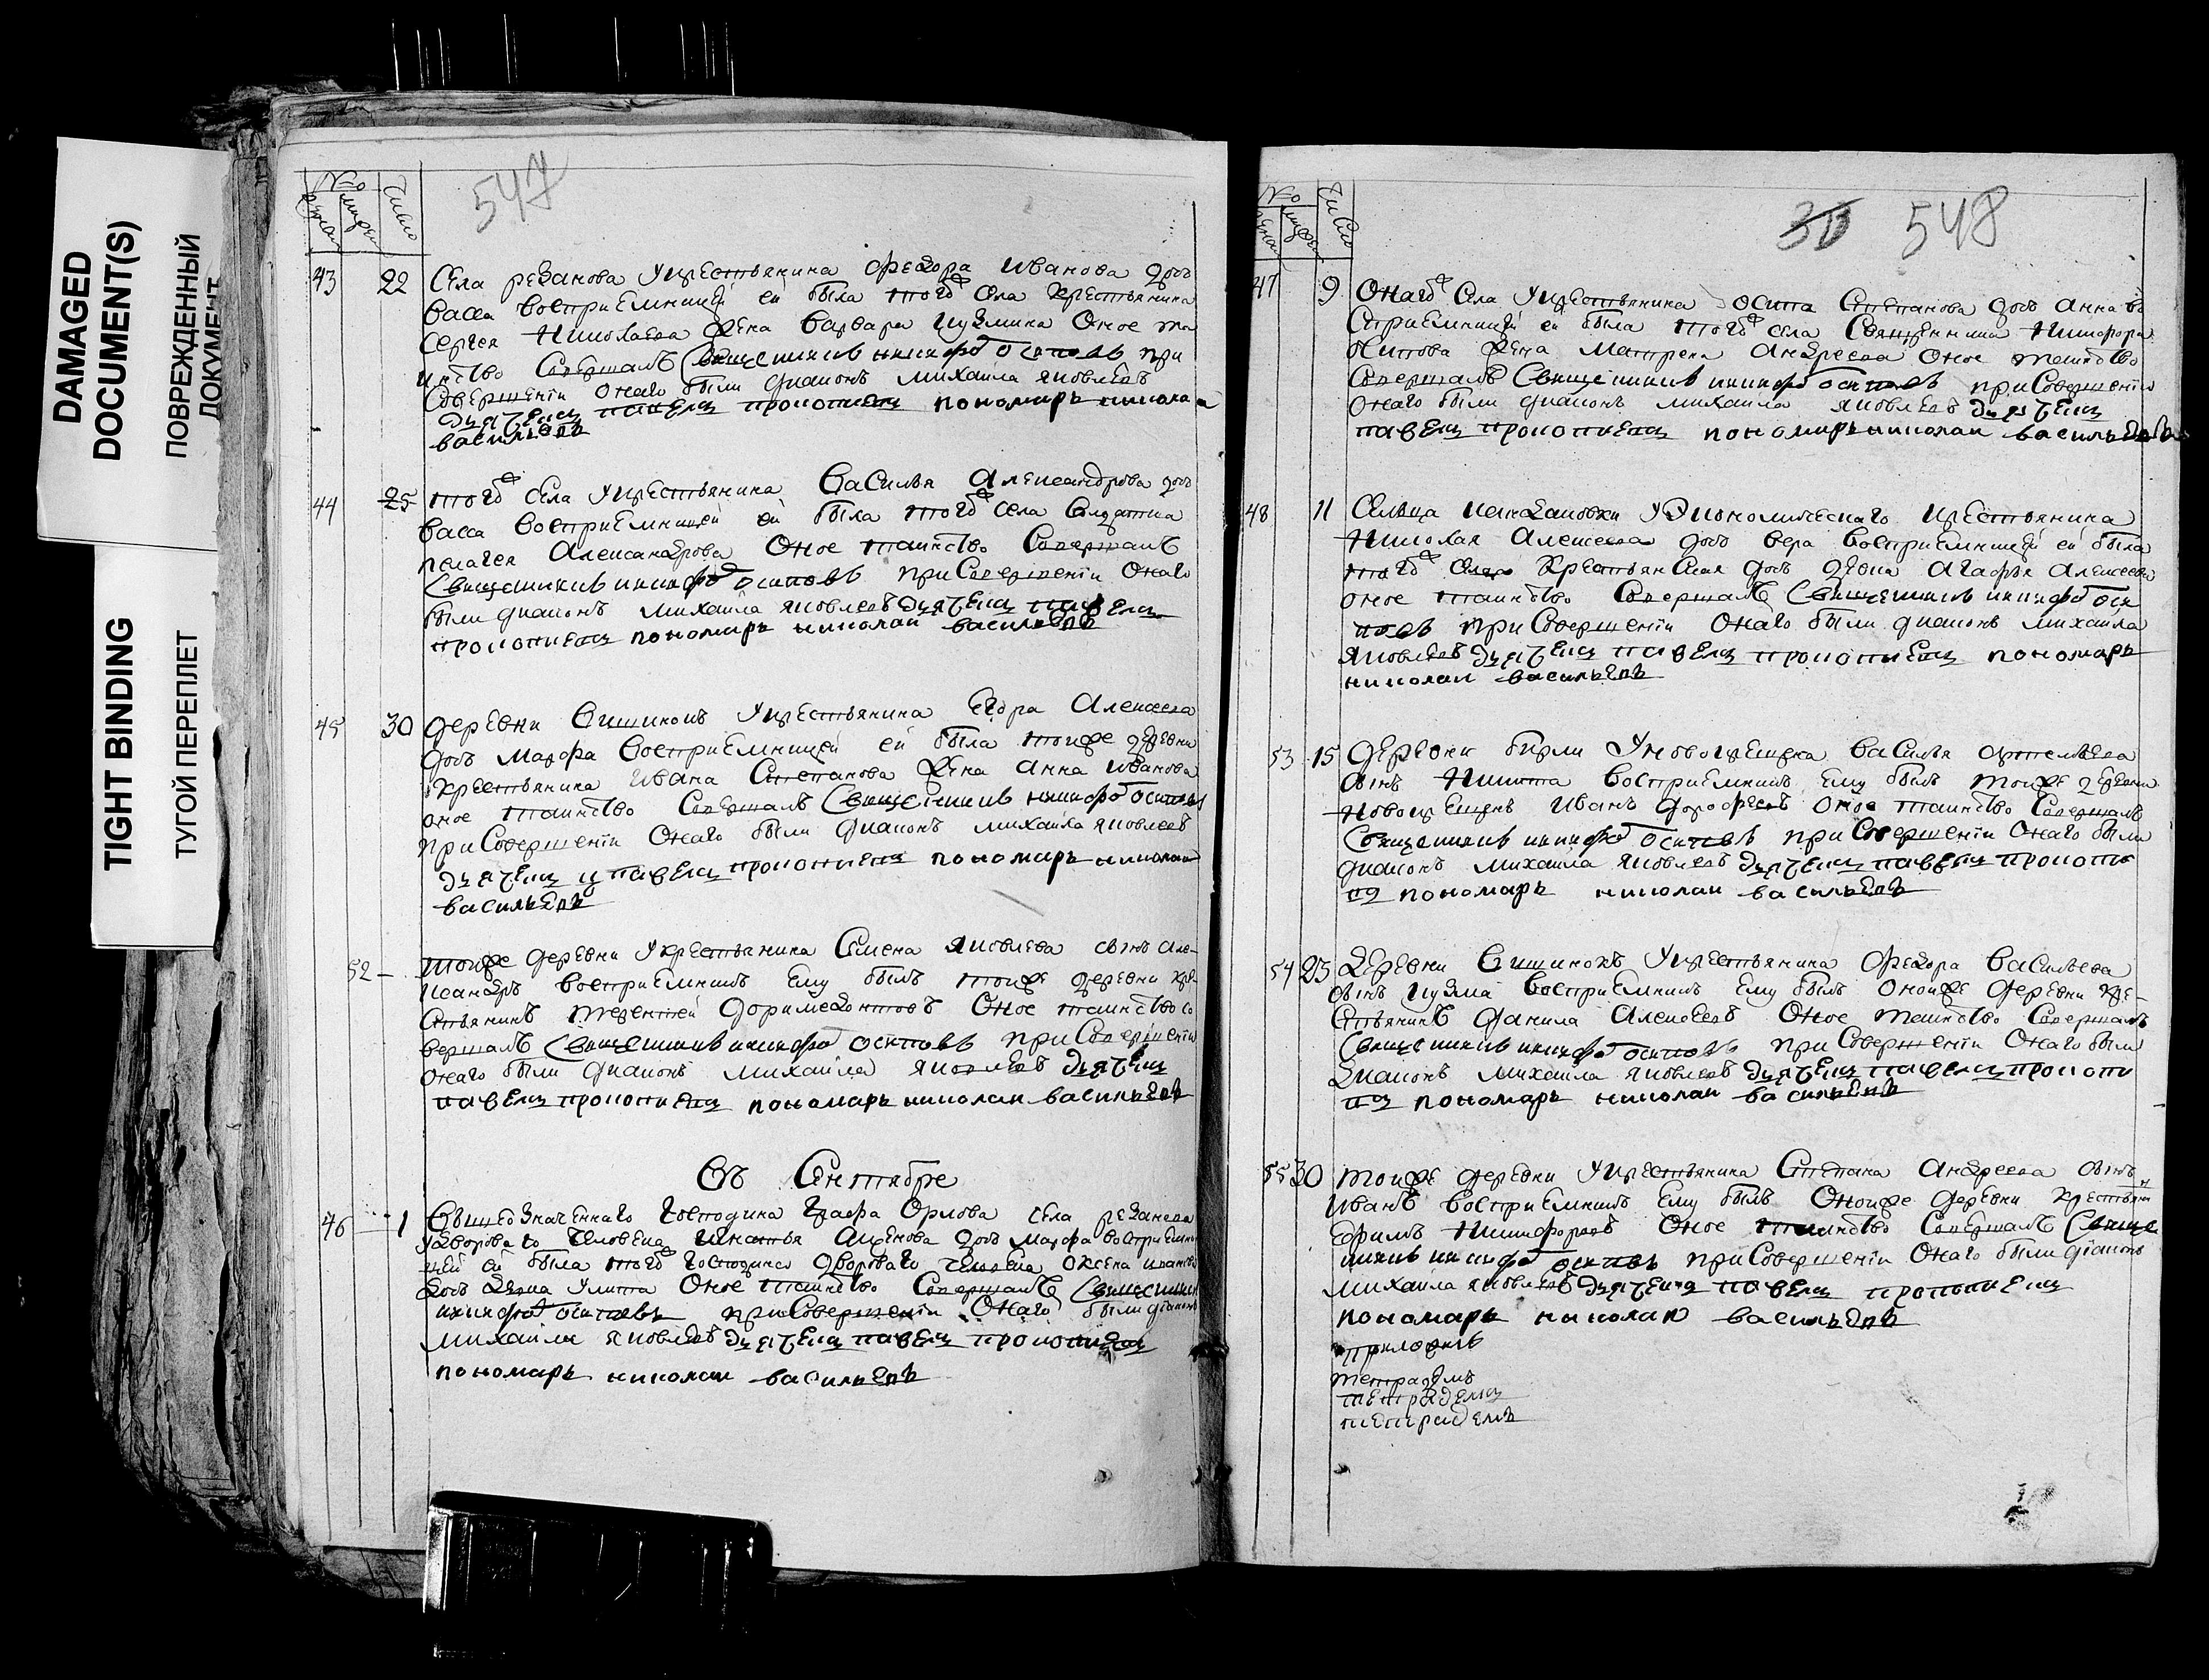 DAMAGED
DOCUMENT(S)
ПОВРЕЖДЕННЫЙ
ДОКУМЕНТ
TIGHT BINDING
ТУГОЙ ПЕРЕПЛЕТ
547
No
Число
43 22 Села резанова укрестьянина Федора Иванова дочь
васса восприемницей ей была тогож села крестьянина
сергея Николаева жена варвара кузмина Оное та
инство Совершалъ Священникъ никифоръ осиповъ при
Совершенiи Онаго были диаконъ михаила яковлевъ
дьячекъ павелъ прокопиевъ пономарь николаи
васильевъ
44 25 тогож села укрестьянина Василья Александрова дочь
васса восприемницей ей была тогож села Солдатка
пелагея Александрова Оное таинство Совершалъ
Священникъ никифоръ осиповъ при Совершенiи Онаго
были диаконъ михаила яковлевъ дьячекъ павелъ
прокопиевъ пономарь николаи васильевъ
45 30 деревни Вишнокъ укрестьянина Егора Алексеева
дочь марфа восприемницей ей была тоиже деревни
крестьянина Ивана Степанова жена анна Иванова
оное таинство Совершалъ Священникъ никифоръ осиповъ
при Совершенiи Онаго были диаконъ михаила яковлевъ
дьячекъ павелъ прокопиевъ пономарь николаи
васильевъ
52 тоиже деревни укрестьянина Семена яковлева сынъ але-
ксандръ восприемникъ ему былъ тоиже деревни кре-
стьянинъ терентей доримедонтовъ Оное таинство со
вершалъ Священникъ никифоръ осиповъ при Совершенiи
Онаго были диаконъ михаила яковлевъ дьячекъ
павелъ прокопиевъ пономарь николаи васильевъ
Въ Сентябре
46 1 Вышеозначеннаго господина Графа Орлова села резанова
удвороваго человека Игнатья дочь марфа восприемни
цей ей была тогож господина двороваго человека
дочь девка улита Оное таинство Совершалъ Священникъ
никифоръ осиповъ при Совершенiи Онаго были диаконъ
михаила яковлевъ дьячекъ павелъ прокопиевъ
пономарь николаи васильевъ
548
No
Число
47 9 Онагож села укрестьянина осипа Степанова дочь анна во
сприемницей ей была тогож села Священника Никифора
Осипова жена Матрена андреева Оное таинство
Совершалъ Священникъ никифоръ осиповъ при Совершенiи
Онаго были диаконъ михаила яковлевъ дьячекъ
павелъ прокопиевъ пономарь николаи васильевъ
48 11 Сельца уэкономическаго крестьянина
Николая Алексеева дочь вера восприемницей ей была
тогож крестьянская дочь девка агафья алексеева
оное таинство Совершалъ Священникъ никифоръ оси
повъ при Совершенiи Онаго были диаконъ михаила
яковлевъ дьячекъ павелъ прокопиевъ пономарь
николаи васильевъ
53 15 деревни бирли уновокрещена василья
сынъ Никита восприемникъ ему былъ тоиже деревни
новокрещенъ иванъ дорофеевъ Оное таинство Совершалъ
Священникъ никифоръ осиповъ при Совершенiи Онаго были
диаконъ михаила яковлевъ дьячекъ павелъ прокопи
въ пономарь николаи васильевъ
54 23 Деревни Вишнокъ укрестьянина Федора Васильева
сынъ кузма восприемникъ ему былъ оноиже деревни кре-
стьянинъ данила алексеевъ Оное таинство Совершалъ
Священникъ никифоръ осиповъ при Совершенiи Онаго были
диаконъ михаила яковлевъ дьячекъ павелъ прокопи
въ пономарь николаи васильевъ
55 30 тоиже деревни укрестьянина Степана андреева сынъ
иванъ восприемникъ ему былъ Оноиже деревни крестьянинъ
ефимъ Никифоровъ Оное таинство Совершалъ Свяще
нникъ никифоръ осиповъ при Совершенiи Онаго были дiаконъ
михаила яковлевъ дьячекъ павелъ прокопиевъ
пономарь николаи васильевъ